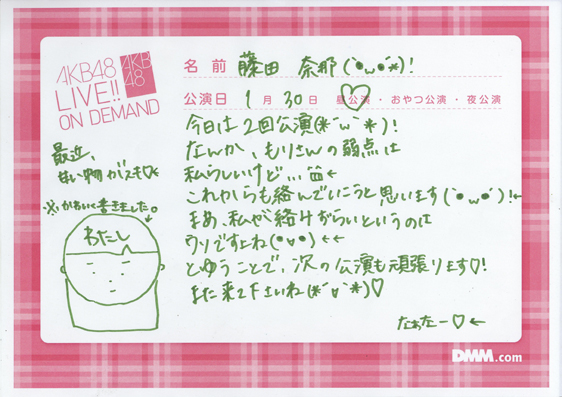 AKB48
LIVE!!
ON DEMAND
AKB
48
名前 藤田 奈那(`•ω•´*)!
公演日 1月30日 昼公演・おやつ公演・夜公演
今日は2回公演(*´ω`*)!
なんか、もりさんの弱点は
私らしいけど…
これからも絡んでいこうと思います(`•ω•´)!←
まぁ、私が絡みずらいというのは
ウソですよね(•∀•)←←
とゆうことで、次の公演も頑張ります♡!
また来て下さいね(*´∀`*)♡
なぁなー♡←
最近、
甘い物がスキ♡
※かわいく書きました。
わたし
DMM.com